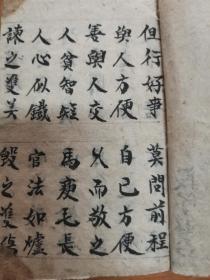 但行好事
莫问前程
與人方便
自己方便
善與人交
久而敬之
人貧智短
馬瘦毛長
人心似鐵
官法如爐
諫之雙美
毀之雙傷